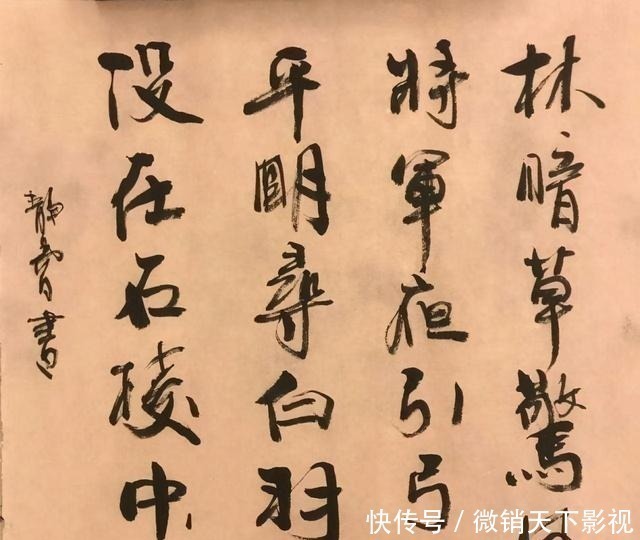 林暗草驚
將軍夜引弓
平明尋白羽
没在石棱中
靜 書
快传号 / 微销天下影视